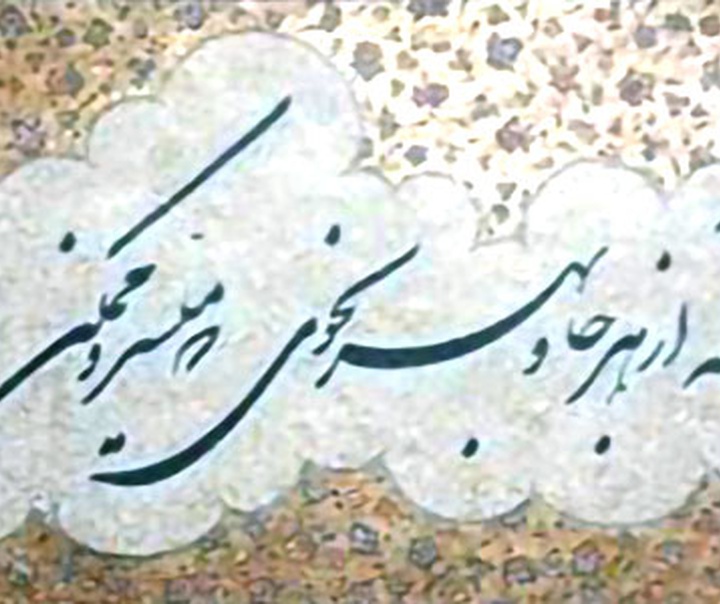 از هر جا و بهر نحوی میسر و ممکن